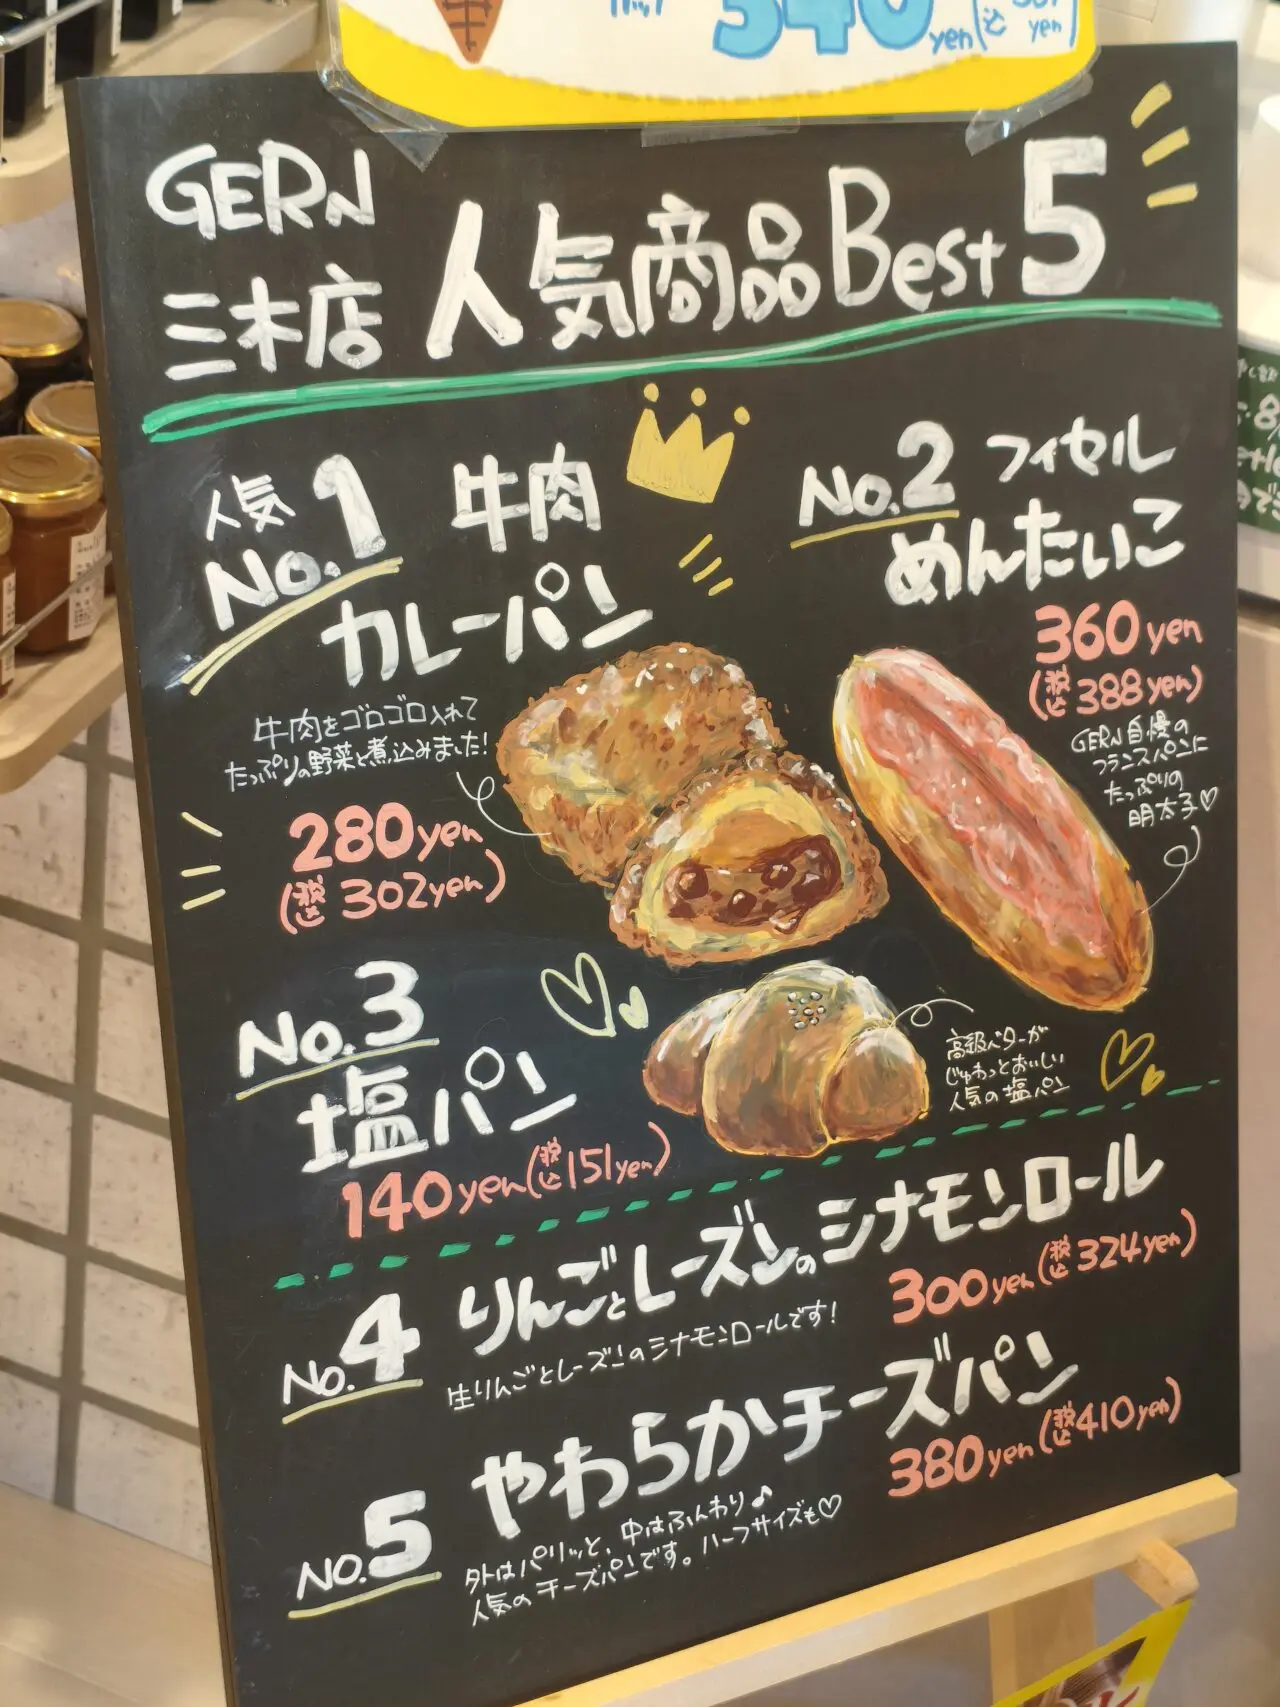 340yen(込
yen
GERN
三木店
人気商品Best5
人気
No.1
牛肉
カレーパン
牛肉をゴロゴロ入れて
たっぷりの野菜と煮込みました!
280yen
(税込302yen)
No.2 フィセル
めんたいこ
360yen
(税込388yen)
GERN自慢の
フランスパンに
たっぷりの
明太子♡
No.3
塩パン
140yen(税込151yen)
高級バターが
じゅわっとおいしい
人気の塩パン
No.4
りんごとレーズンのシナモンロール
300yen(税込324yen)
生りんごとレーズンのシナモンロールです!
No.5
やわらかチーズパン
380yen(税込410yen)
外はパリッと、中はふんわり♪
人気のチーズパンです。ハーフサイズも♡